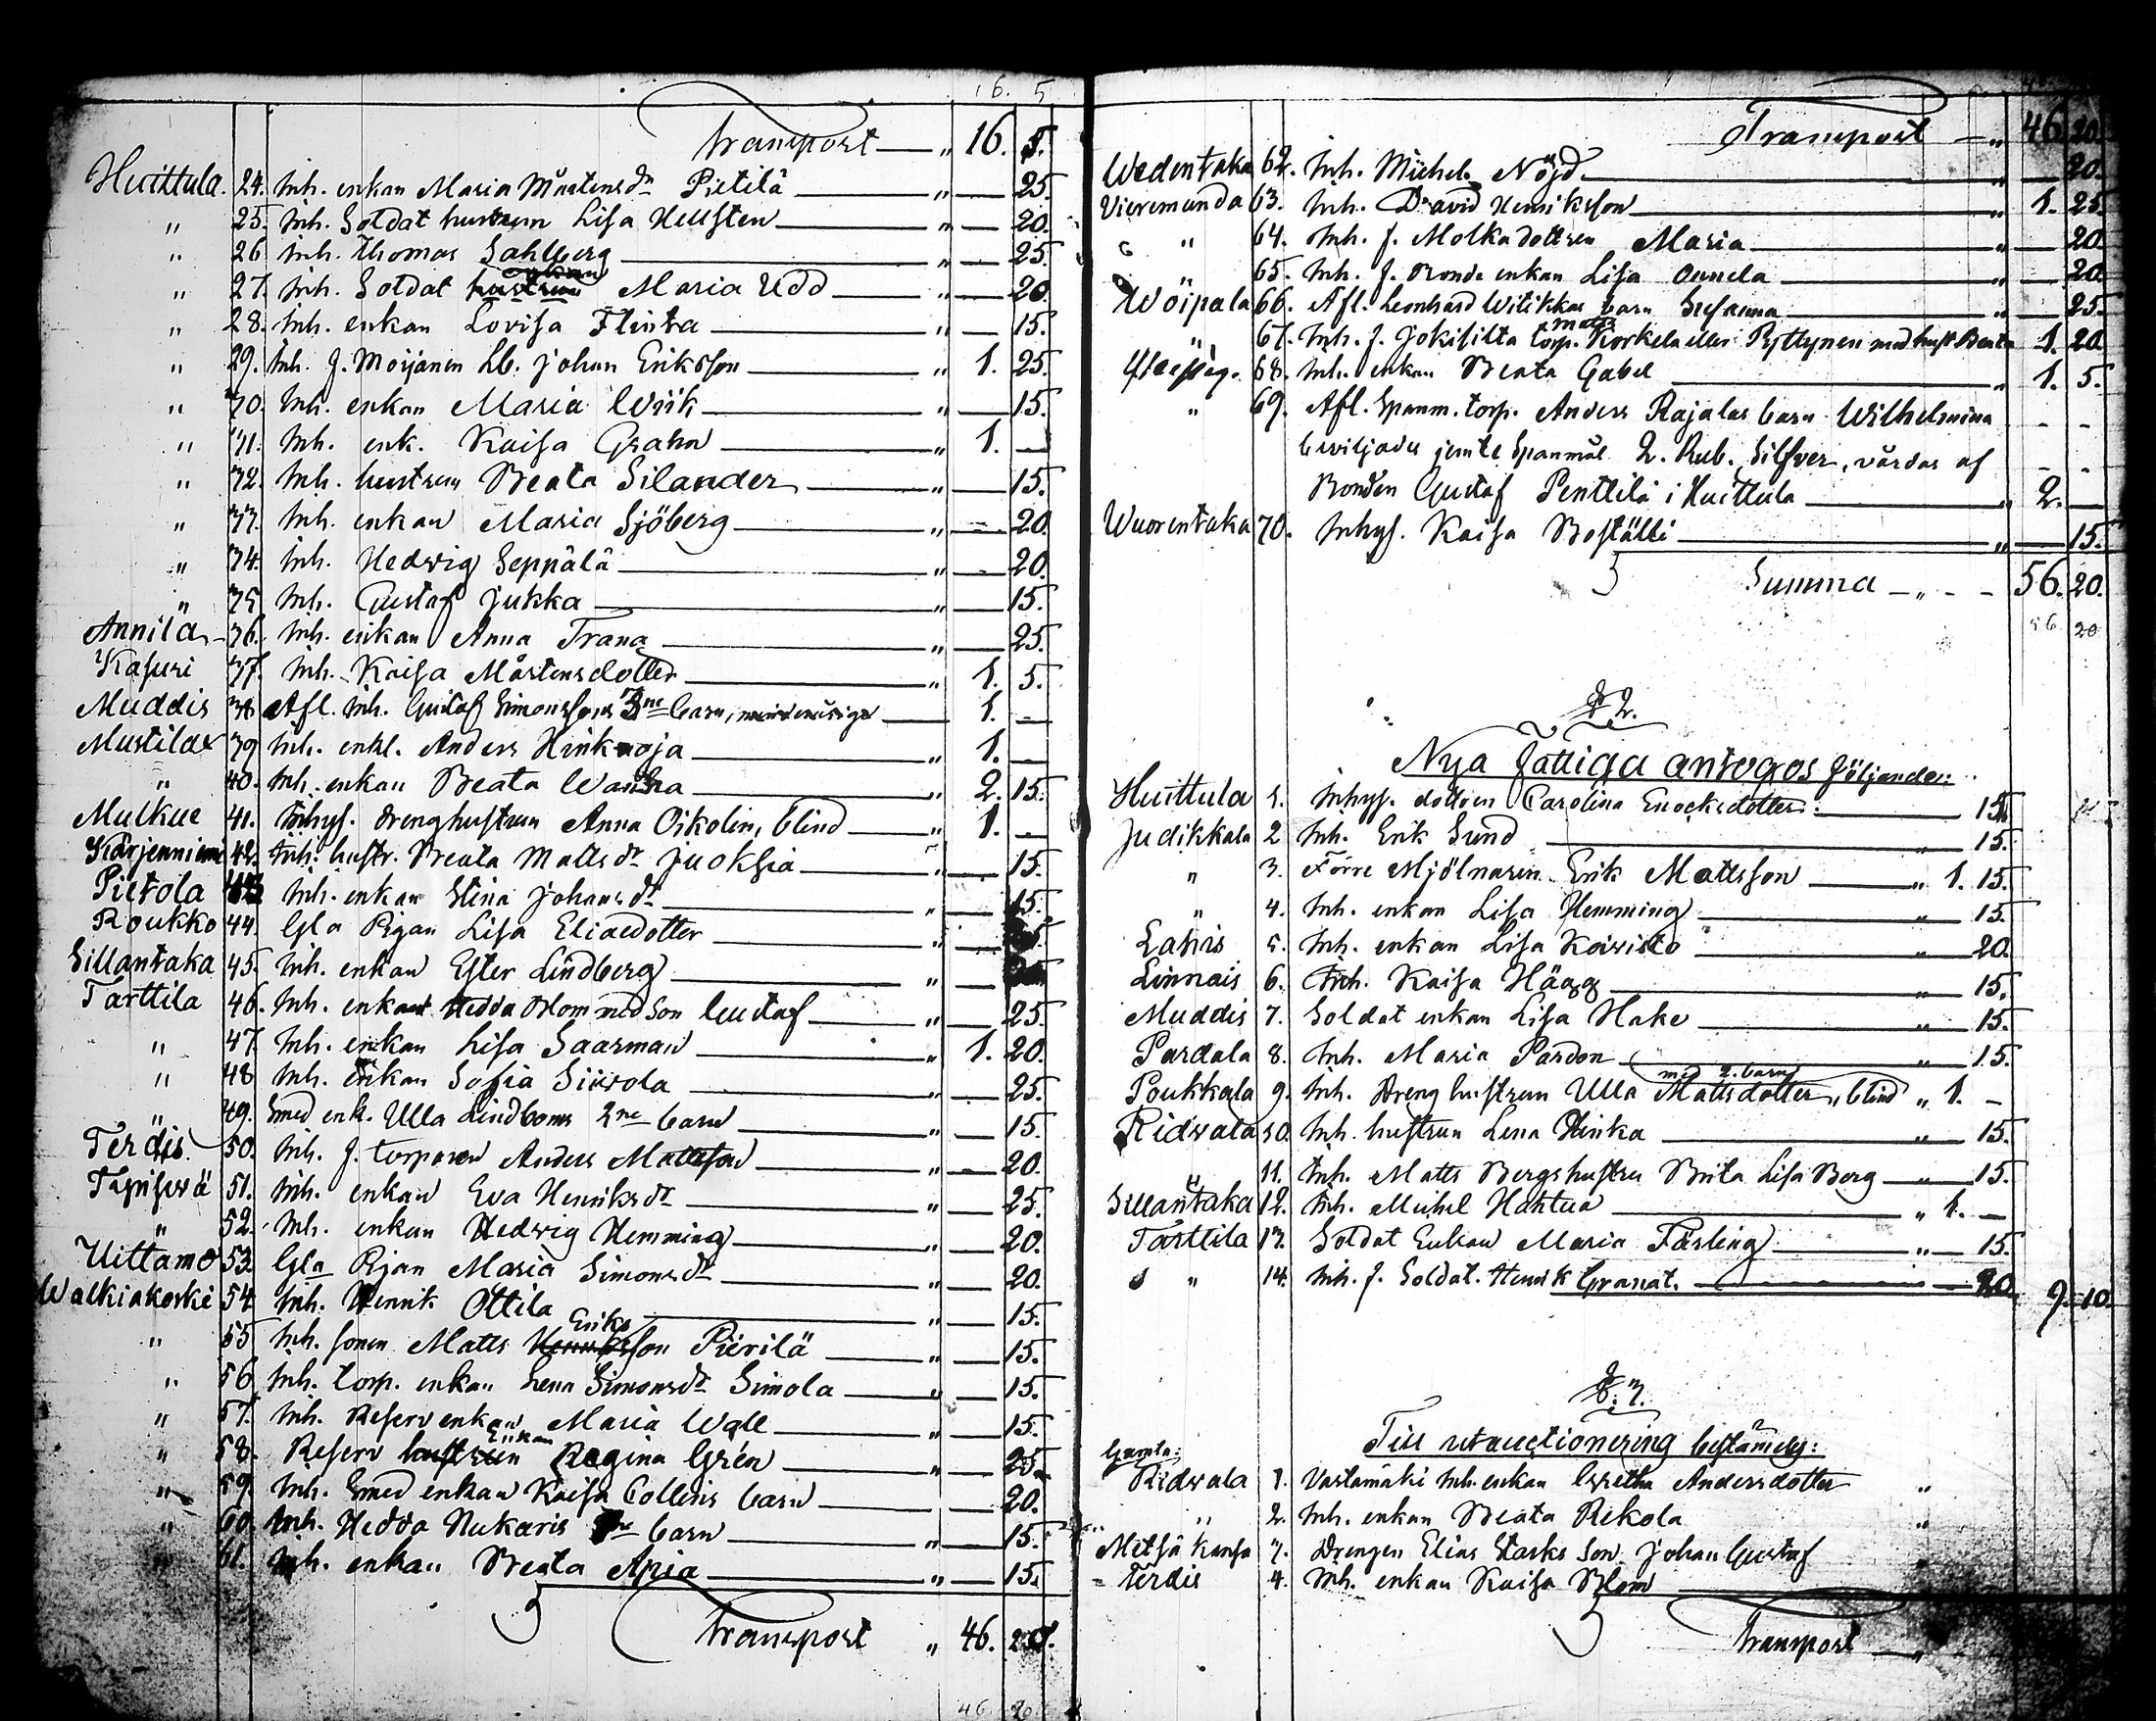 16. 5
Transport — „ 16. 5.
Huittula. 24. Inh. enkan Maria Mårtensdr Pietilä — „ — 25.
„ 25. Inh. Soldat hustrun Lisa Hellsten — „ — 20.
„ 26. Inh. Thomas Sahlberg — „ — 25.
„ 27. Inh. Soldat enkan Maria Udd — „ — 20.
„ 28. Inh. enkan Lovisa Flinta — „ — 15.
„ 29. Inh. f. Moijanen Lb. Johan Eriksson — „ 1. 25.
„ 30. Inh. enkan Maria Wiik — „ — 15.
„ 31. Inh. enk. Kaisa Grahn — „ 1. —
„ 32. Inh. hustrun Beata Silander — „ — 15.
„ 33. Inh. enkan Maria Sjöberg — „ — 20.
„ 34. Inh. Hedvig Seppälä — „ — 20.
„ 35. Inh. Gustaf Jukka — „ — 15.
Annila 36. Inh. enkan Anna Trana — „ — 25.
Kasuri 37. Inh. Kaisa Mårtensdotter — „ 1. 5.
Muddis 38. Afl. Inh. Gustaf Simonssons 3ne barn, — 1. —
Mustila 39. Inh. enkl. Anders Hinknoja — „ 1. —
„ 40. Inh. enkan Beata Wanha — „ 2. 15.
Mulkue 41. Inhys. drenghustrun Anna Oikolin, blind — „ 1. —
Kärjenniemi 42. Inh. hustr. Beata Mattsdr Juoksia — „ — 15.
Pietola 43. Inh. enkan Stina Johansdr — „ — 15.
Roukko 44. Gla Pigan Lisa Eliaedotter — „ —
Sillantaka 45. Inh. enkan Ester Lindberg — „ —
Tarttila 46. Inh. enkan Hedda Blom med son Gustaf — „ — 25.
„ 47. Inh. enkan Lisa Saarman — „ 1. 20.
„ 48. Inh. enkan Sofia Siirola — „ — 25.
„ 49. Smed enk. Ulla Lindboms 2ne barn — „ — 15.
Terdis 50. Inh. f. torparen Anders Mattsson — „ — 20.
51. Inh. enkan Eva Henriksdr — „ — 25.
„ 52. Inh. enkan Hedvig Hemming — „ — 20.
Uittamo 53. Gla Pigan Maria Simonsdr — „ — 20.
Walkiakoski 54. Inh. Henrik Ottila — „ — 15.
„ 55. Inh. sonen Matts Eriksson Pierilä — „ — 15.
„ 56. Inh. torp. enkan Lena Simonsdr Simola — „ — 15.
„ 57. Inh. Reserv enkan Maria Wall — „ — 15.
„ 58. Reserv Enkan Regina Grén — „ — 25.
„ 59. Inh. Smed enkan Kaisa Collins barn — „ — 20.
„ 60. Inh. Hedda Nukaris barn — „ — 15.
„ 61. Inh. enkan Beata Apia — „ — 15.
Transport „ 46. 20.
46 20
Transport — „ 46. 20.
Wedentaka 62. Inh. Michel Nöjd — „ — 20.
Vieremanda 63. Inh. David Henriksson — „ 1. 25.
„ 64. Inh. f. Molkadottren Maria — „ — 20.
„ 65. Inh. f. Bonde enkan Lisa Onnela — „ — 20.
Woipala 66. Afl. Leonhard Witikkas barn Stefanna — „ — 25.
„ 67. Inh. f. Jokisilta torp. Matts Korkela eller Pyttynen med hust. Beata 1. 20.
68. Inh. enkan Beata Gabel — „ 1. 5.
„ 69. Afl. Spanm. torp. Anders Rajalas barn Wilhelmina - -
beviljades jemte Spanmål 2. Rub. Silfver, vårdas af - -
Bonden Gustaf Penttilä i Huittula — „ 2. —
Wuorentaka 70. Inhys. Kaisa Boställi — „ — 15.
Summa — „ - - 56. 20.
56 20
§ 2.
Nya fattiga antogos följande:
Huittula 1. Inhys. dottren Carolina Enocksdotter — 15.
Judikkala 2. Inh. Erik Lund — „ — 15.
„ 3. Förre Mjölnaren Erik Mattsson — „ 1. 15.
„ 4. Inh. enkan Lisa Hemming — „ — 15.
Lahis 5. Inh. enkan Lisa Koivisto — „ — 20.
Linnais 6. Inh. Kaisa Hägg — „ — 15.
Muddis 7. Soldat enkan Lisa Hake — „ — 15.
Pardala 8. Inh. Maria Pardon — „ — 15.
Poukkala 9. Inh. Dreng hustrun Ulla Mattsdotter, med 2. barn blind „ 1. —
Ridvala 10. Inh. hustrun Lena Hinka — „ — 15.
„ 11. Inh. Matts Bergs hustru Brita Lisa Berg — „ — 15.
Sillantaka 12. Inh. Michel Hahtua — „ 1. —
Tarttila 13. Soldat Enkan Maria Färling — „ — 15.
„ 14. Inh. f. Soldat. Henrik Granat. — 20. 9. 10.
§. 3.
Till utauctionering bestämdes:
Gamla:
Ridvala 1. Vastamäki Inh. enkan Gretha Andersdotter „
„ 2. Inh. enkan Beata Rekola „
Metsäkansa 3. Drengen Elias Starks Son Johan Gustaf „
Terdis 4. Inh. enkan Kaisa Blom —
Transport — „